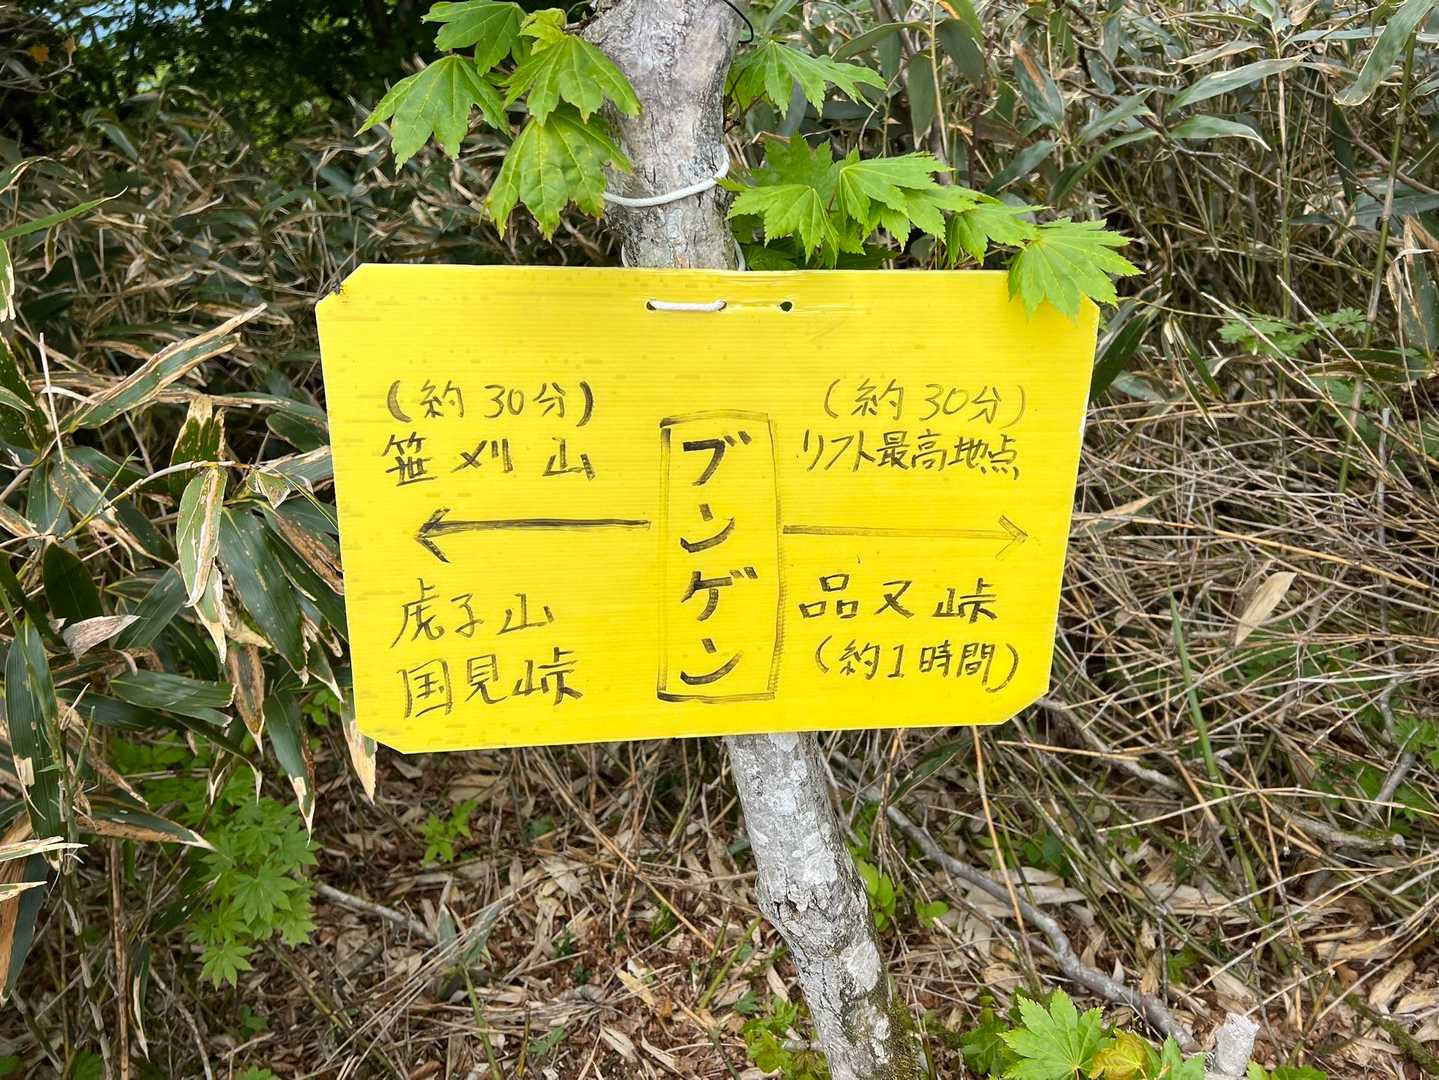 (約30分)
笹刈山
虎子山
国見峠
ブンゲン
(約30分)
リフト最高地点
品又峠
(約1時間)